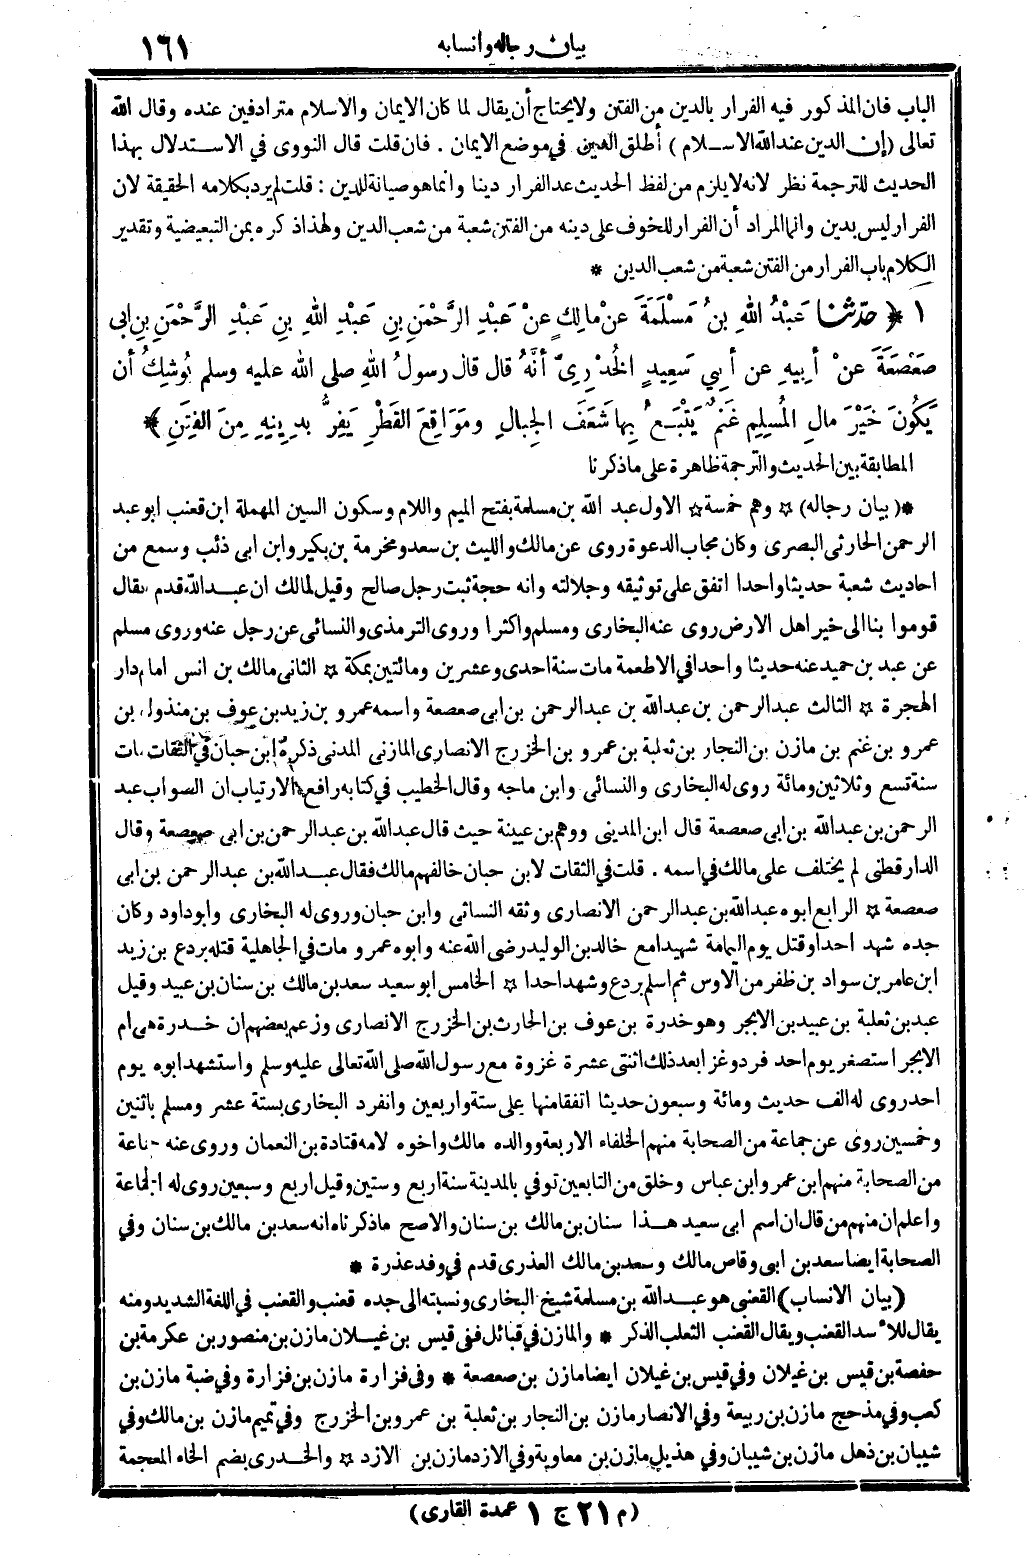 بيان رجاله وأنسابه ١٦١
الباب فان المذكور فيه الفرار بالدين من الفتن ولا يحتاج أن يقال لما كان الايمان والاسلام مترادفين عنده وقال الله
تعالى (إن الدين عند الله الاسلام) أطلق الدين في موضع الايمان . فان قلت قال النووى في الاستدلال بهذا
الحديث للترجمة نظر لانه لا يلزم من لفظ الحديث عد الفرار دينا وانما هو صيانة للدين : قلت لم يرد بكلامه الحقيقة لان
الفرار ليس بدين وانما المراد أن الفرار للخوف على دينه من الفتن شعبة من شعب الدين ولهذا ذكره بمن التبعيضية وتقدير
الكلام باب الفرار من الفتن شعبة من شعب الدين *
١ ﴿ حدّثنا عَبْدُ اللهِ بنُ مَسْلَمَةَ عنْ مالِكٍ عنْ عَبْدِ الرَّحْمَنِ بنِ عَبْدِ اللهِ بنِ عَبْدِ الرَّحْمَنِ بنِ ابى
صَعْصَعَةَ عنْ أبِيهِ عن أبِي سَعِيدٍ الخُدْرِىّ أنَّهُ قال قال رسولُ اللهِ صلى الله عليه وسلم يُوشِكُ أن
يَكُونَ خَيْرَ مالِ المُسْلِمِ غَنَمٌ يَتْبَعُ بِها شَعَفَ الجِبالِ ومَوَاقِعَ القَطْرِ يَفِرُّ بِدِينِهِ مِنَ الفِتَنِ ﴾
المطابقة بين الحديث والترجمة ظاهرة على ما ذكرنا
*(بيان رجاله) ☆ وهم خمسة ☆ الاول عبد الله بن مسلمة بفتح الميم واللام وسكون السين المهملة ابن قعنب ابو عبد
الرحمن الحارثى البصرى وكان مجاب الدعوة روى عن مالك والليث بن سعد ومخرمة بن بكير وابن ابى ذئب وسمع من
احاديث شعبة حديثا واحدا اتفق على توثيقه وجلالته وانه حجة ثبت رجل صالح وقيل لمالك ان عبد الله قدم فقال
قوموا بنا الى خير اهل الارض روى عنه البخارى ومسلم واكثرا وروى الترمذى والنسائى عن رجل عنه وروى مسلم
عن عبد بن حميد عنه حديثا واحدا في الاطعمة مات سنة احدى وعشرين ومائتين بمكة ☆ الثانى مالك بن انس امام دار
الهجرة ☆ الثالث عبد الرحمن بن عبد الله بن عبد الرحمن بن ابى صعصعة واسمه عمرو بن زيد بن عوف بن منذول بن
عمرو بن غنم بن مازن بن النجار بن ثعلبة بن عمرو بن الخزرج الانصارى المازنى المدنى ذكره ابن حبان في الثقات مات
سنة تسع وثلاثين ومائة روى له البخارى والنسائى وابن ماجه وقال الخطيب في كتابه رافع الارتياب ان الصواب عبد
الرحمن بن عبد الله بن ابى صعصعة قال ابن المدينى ووهم بن عيينة حيث قال عبد الله بن عبد الرحمن بن ابى صعصعة وقال
الدارقطنى لم يختلف على مالك في اسمه . قلت في الثقات لابن حبان خالفهم مالك فقال عبد الله بن عبد الرحمن بن ابى
صعصعة ☆ الرابع ابوه عبد الله بن عبد الرحمن الانصارى وثقه النسائى وابن حبان وروى له البخارى وابو داود وكان
جده شهد احدا وقتل يوم اليمامة شهيدا مع خالد بن الوليد رضى الله عنه وابوه عمرو مات في الجاهلية قتله بردع بن زيد
ابن عامر بن سواد بن ظفر من الاوس ثم اسلم بردع وشهد احدا ☆ الخامس ابو سعيد سعد بن مالك بن سنان بن عبيد وقيل
عبد بن ثعلبة بن عبيد بن الابجر وهو خدرة بن عوف بن الحارث بن الخزرج الانصارى وزعم بعضهم ان خدرة هى ام
الابجر استصغر يوم احد فرد وغزا بعد ذلك اثنتى عشرة غزوة مع رسول الله صلى الله تعالى عليه وسلم واستشهد ابوه يوم
احد روى له الف حديث ومائة وسبعون حديثا اتفقا منها على ستة واربعين وانفرد البخارى بستة عشر ومسلم باثنين
وخمسين روى عن جماعة من الصحابة منهم الخلفاء الاربعة ووالده مالك واخوه لامه قتادة بن النعمان وروى عنه جماعة
من الصحابة منهم ابن عمر وابن عباس وخلق من التابعين توفي بالمدينة سنة اربع وستين وقيل اربع وسبعين روى له الجماعة
واعلم ان منهم من قال ان اسم ابى سعيد هذا سنان بن مالك بن سنان والاصح ما ذكرناه انه سعد بن مالك بن سنان وفي
الصحابة ايضا سعد بن ابى وقاص مالك وسعد بن مالك العذرى قدم في وفد عذرة *
(بيان الانساب) القعنبى هو عبد الله بن مسلمة شيخ البخارى ونسبته الى جده قعنب والقعنب في اللغة الشديد ومنه
يقال للاسد القعنب ويقال القعنب الثعلب الذكر * والمازن في قبائل ففى قيس بن غيلان مازن بن منصور بن عكرمة بن
حفصة بن قيس بن غيلان وفي قيس بن غيلان ايضا مازن بن صعصعة * وفي فزارة مازن بن فزارة وفي ضبة مازن بن
كعب وفي مذحج مازن بن ربيعة وفي الانصار مازن بن النجار بن ثعلبة بن عمرو بن الخزرج وفي تميم مازن بن مالك وفي
شيبان بن ذهل مازن بن شيبان وفي هذيل مازن بن معاوية وفي الازد مازن بن الازد ☆ والخدرى بضم الخاء المعجمة
(م ٢١ ج ١ عمدة القارى)